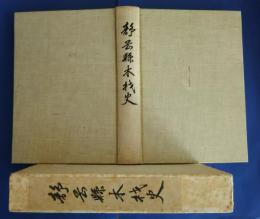 靜岡縣木材史
靜岡縣木材史